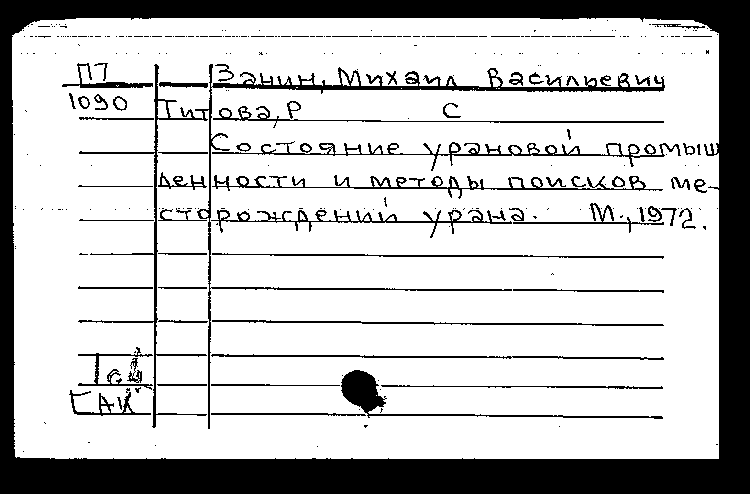 П7 Занин, Михаил Васильевич
1090 Титова, Р С
Состояние урановой промыш
ленности и методы поисков ме-
сторождений урана. М., 1972.
САК